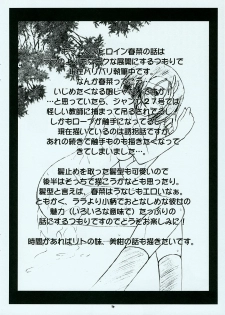 ヒロイン春菜の話は
な展開にするつもりで
バリバリ執筆中です。
なんか春菜って…
いじめたくなる
…と思っていたら、ジャンプ27号では
怪しい教師に捕まって
しかもロープが触手になってるし！
現在描いているのは誘拐話ですが
あれの続きで触手ものも描きたくなって
きてしまいました…。
髪止めを取った髪型も可愛いので
後半はそっちで描こうかなとも思ったり。
髪型と言えば、春菜はうなじもエロいなぁ。
ともかく、ララより小柄でおとなしめな彼女の
魅力（いろいろな意味で）たっぷりの
話にするつもりですのでどうをお楽しみに！
時間があればリトの妹、美柑の話も描きたいです。